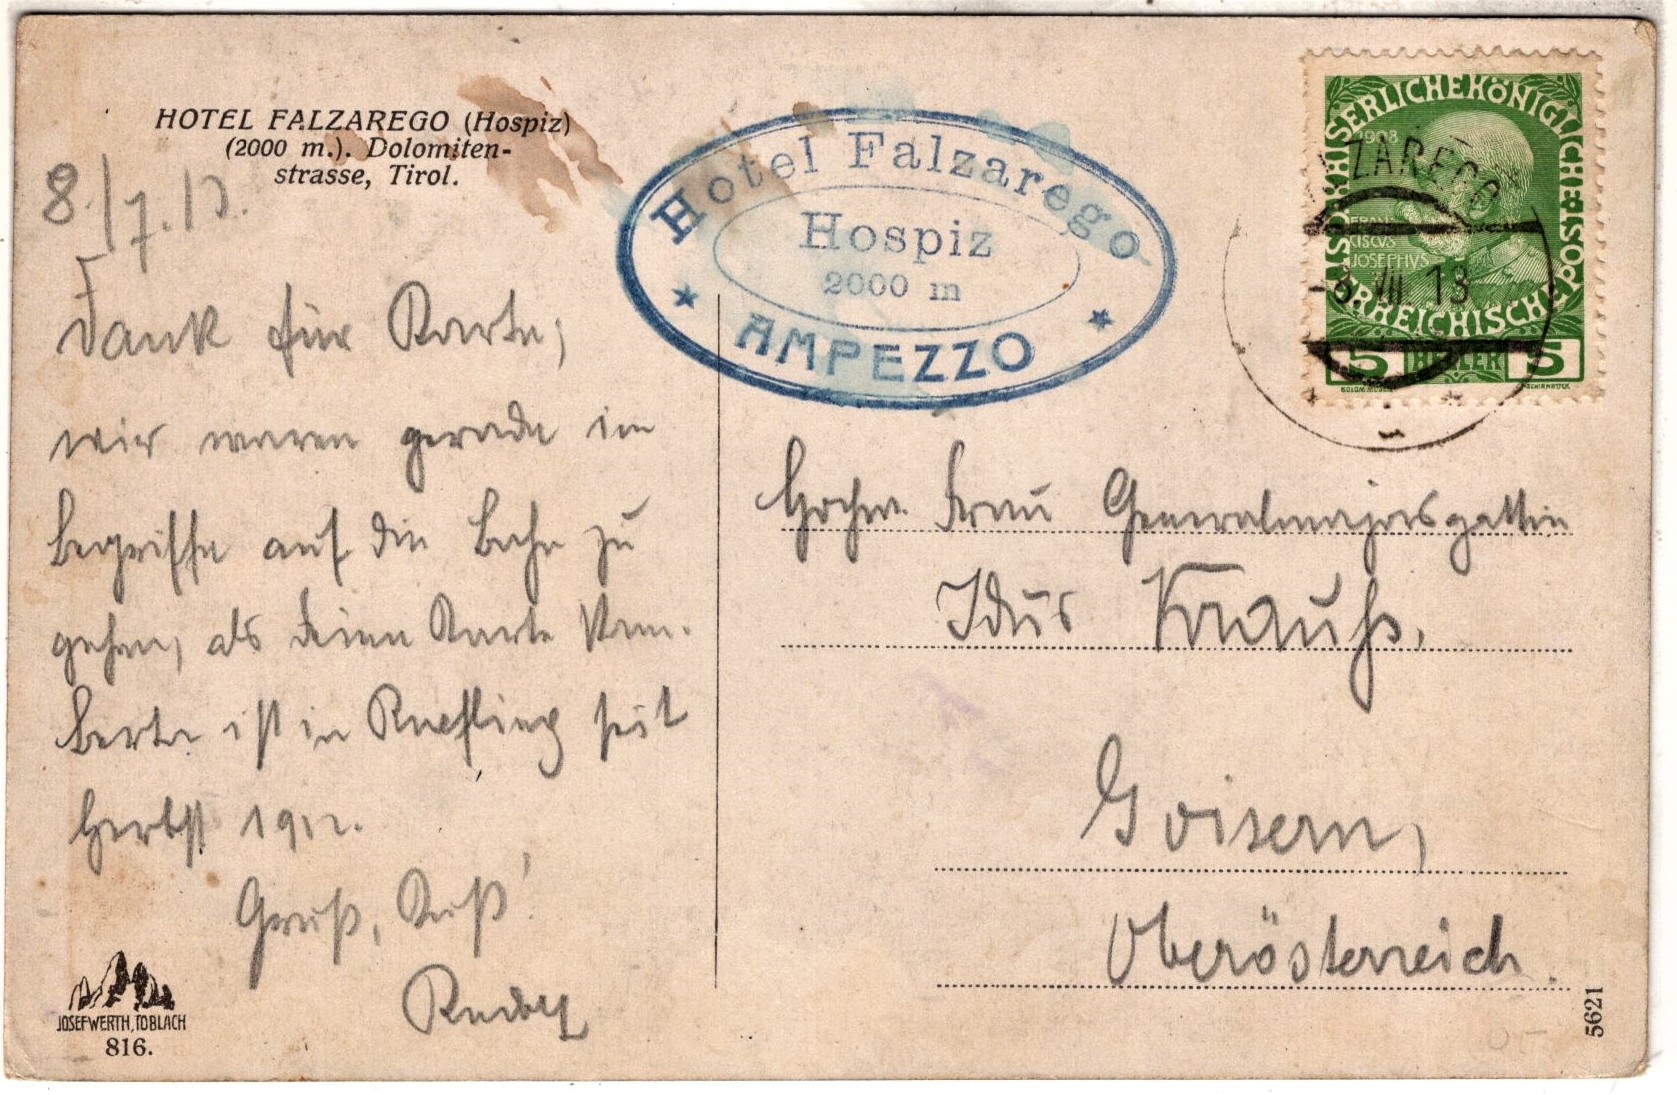 HOTEL FALZAREGO (Hospiz)
(2000 m.). Dolomiten-
strasse, Tirol.
8./7.13.
Dank für Karte,
wir waren gerade im
Begriffe auf die Bahn zu
gehen, als deine Karte kam.
Berta ist in seit
Herbst 1912.
Gruß, Kuß!
JOSEF WERTH, TOBLACH
816.
Hotel Falzarego
Hospiz
2000 m
AMPEZZO
KAISERLICHE KÖNIGLICHE
ÖSTERREICHISCHE POST
1908
FRAN
CISCVS
JOSEPHVS
5 HELLER 5
ZAREGO
-8. VII 13
Hochw. Frau Generalmajorsgattin
Krauß,
Goisern,
Oberösterreich.
5621